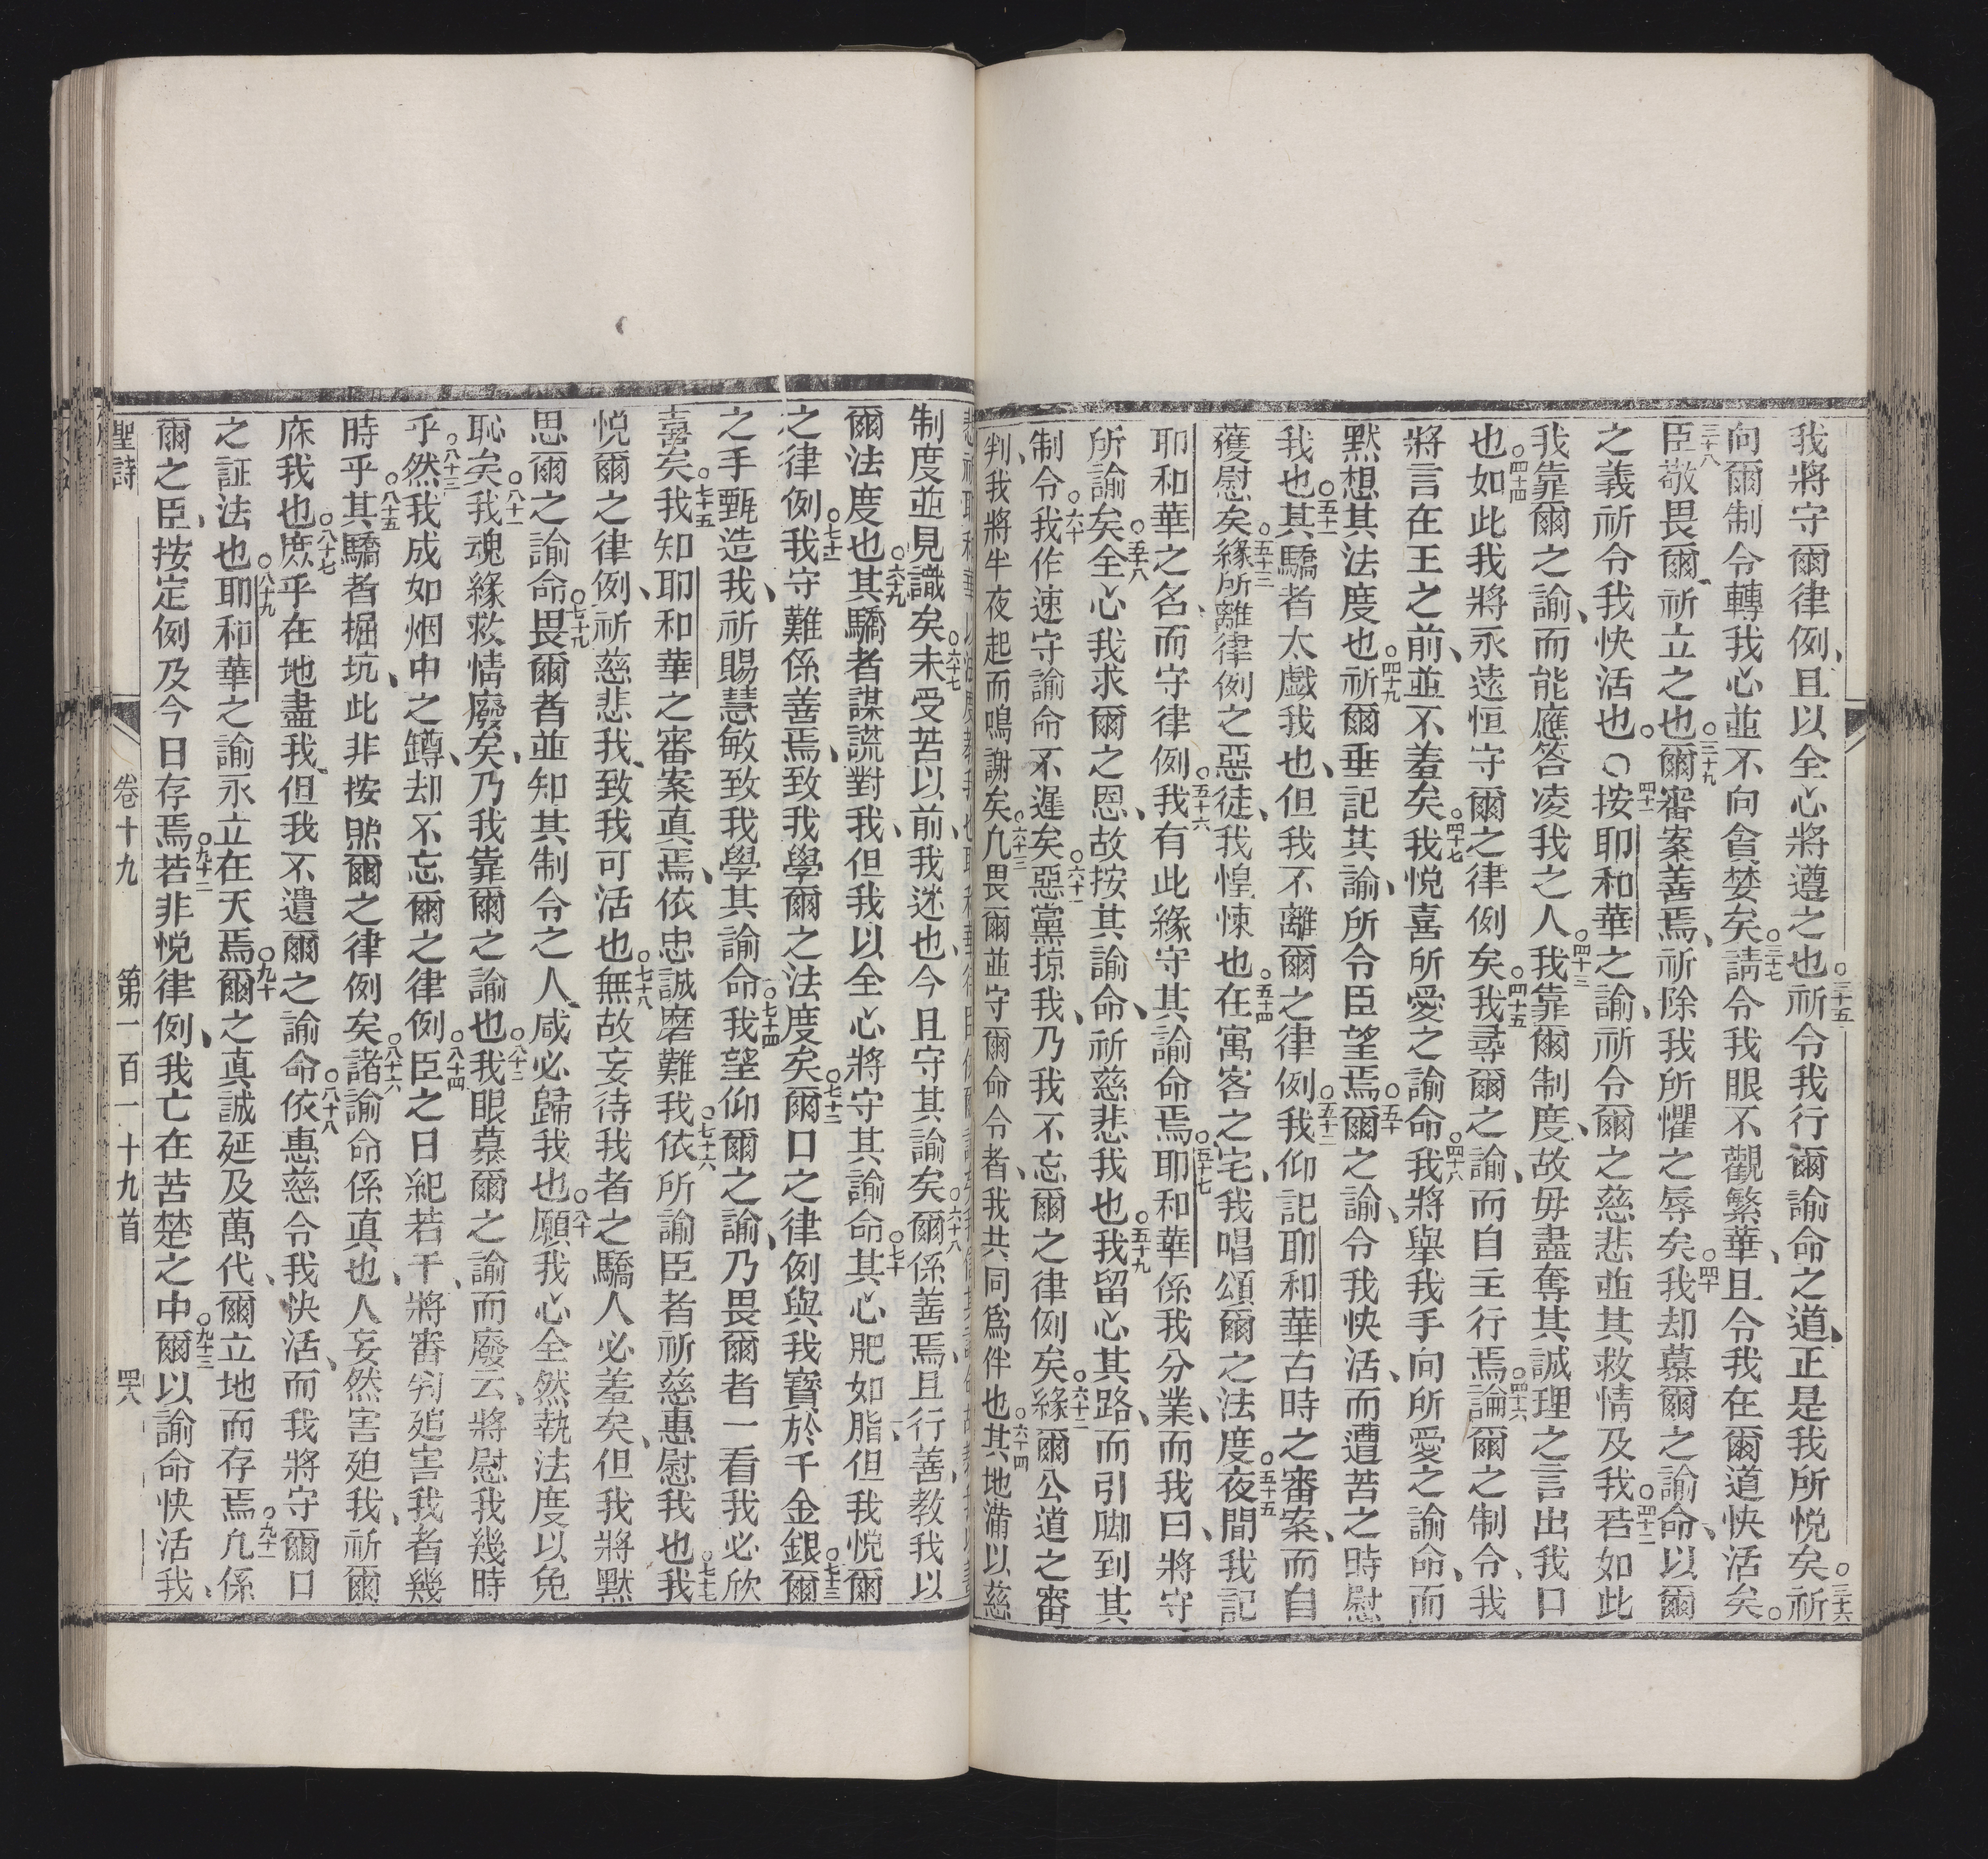 我將守爾律例、且以全心將遵之也○三十五祈令我行爾諭命之道、正是我所悅矣○三十六祈
向爾制令轉我心並不向貪婪矣○三十七請令我眼不觀繁華、且令我在爾道快活矣○
三十八臣敬畏爾、祈立之也○三十九爾審案善焉、祈除我所懼之辱矣○四十我却慕爾之諭命、以爾
之義祈令我快活也○四十一按耶和華之諭、祈令爾之慈悲並其救情及我○四十二若如此
我靠爾之諭、而能應答凌我之人○四十三我靠爾制度、故毋盡奪其誠理之言出我口
也○四十四如此我將永遠恒守爾之律例矣○四十五我尋爾之諭、而自主行焉○四十六論爾之制令、我
將言在王之前、並不羞矣○四十七我悅喜所愛之諭命○四十八我將舉我手向所愛之諭命、而
默想其法度也○四十九祈爾垂記其諭、所令臣望焉○五十爾之諭、令我快活、而遭苦之時慰
我也○五十一其驕者太戲我也、但我不離爾之律例○五十二我仰記耶和華古時之審案、而自
獲慰矣○五十三緣所離律例之惡徒、我惶悚也○五十四在寓客之宅、我唱頌爾之法度○五十五夜間我記
耶和華之名、而守律例○五十六我有此緣守其諭命焉○五十七耶和華係我分業、而我曰、將守
所諭矣○五十八全心我求爾之恩、故按其諭命、祈慈悲我也○五十九我留心其路、而引脚到其
制令○六十我作速守諭命不遲矣○六十一惡黨掠我、乃我不忘爾之律例矣○六十二緣爾公道之審
判、我將半夜起而鳴謝矣○六十三凡畏爾並守爾命令者、我共同爲伴也○六十四其地滿以慈
制度並見識矣○六十七未受苦以前、我迷也、今且守其諭矣○六十八爾係善焉、且行善、教我以
爾法度也○六十九其驕者謀謊對我、但我以全心將守其諭命○七十其心肥如脂、但我悅爾
之律例○七十一我守難係善焉、致我學爾之法度矣○七十二爾口之律例與我寶於千金銀○七十三爾
之手甄造我、祈賜慧敏致我學其諭命○七十四我望仰爾之諭、乃畏爾者一看我必欣
喜矣○七十五我知耶和華之審案真焉、依忠誠磨難我○七十六依所諭臣者祈慈惠慰我也○七十七我
悅爾之律例、祈慈悲我、致我可活也○七十八無故妄待我者之驕人必羞矣、但我將默
思爾之諭命○七十九畏爾者並知其制令之人、咸必歸我也○八十願我心全然執法度以免
恥矣○八十一我魂緣救情廢矣、乃我靠爾之諭也○八十二我眼慕爾之諭而廢云、將慰我幾時
乎○八十三然我成如烟中之罇、却不忘爾之律例○八十四臣之日紀若干、將審判廹害我者幾
時乎○八十五其驕者掘坑、此非按照爾之律例矣○八十六諸諭命係真也、人妄然害廹我、祈爾
庥我也○八十七庶乎在地盡我、但我不遺爾之諭命○八十八依惠慈令我快活、而我將守爾口
之証法也○八十九耶和華之諭永立在天焉○九十爾之真誠延及萬代、爾立地而存焉○九十一凡係
爾之臣、按定例及今日存焉○九十二若非悅律例、我亡在苦楚之中○九十三爾以諭命快活我、
聖詩　卷十九　第一百一十九首　四八